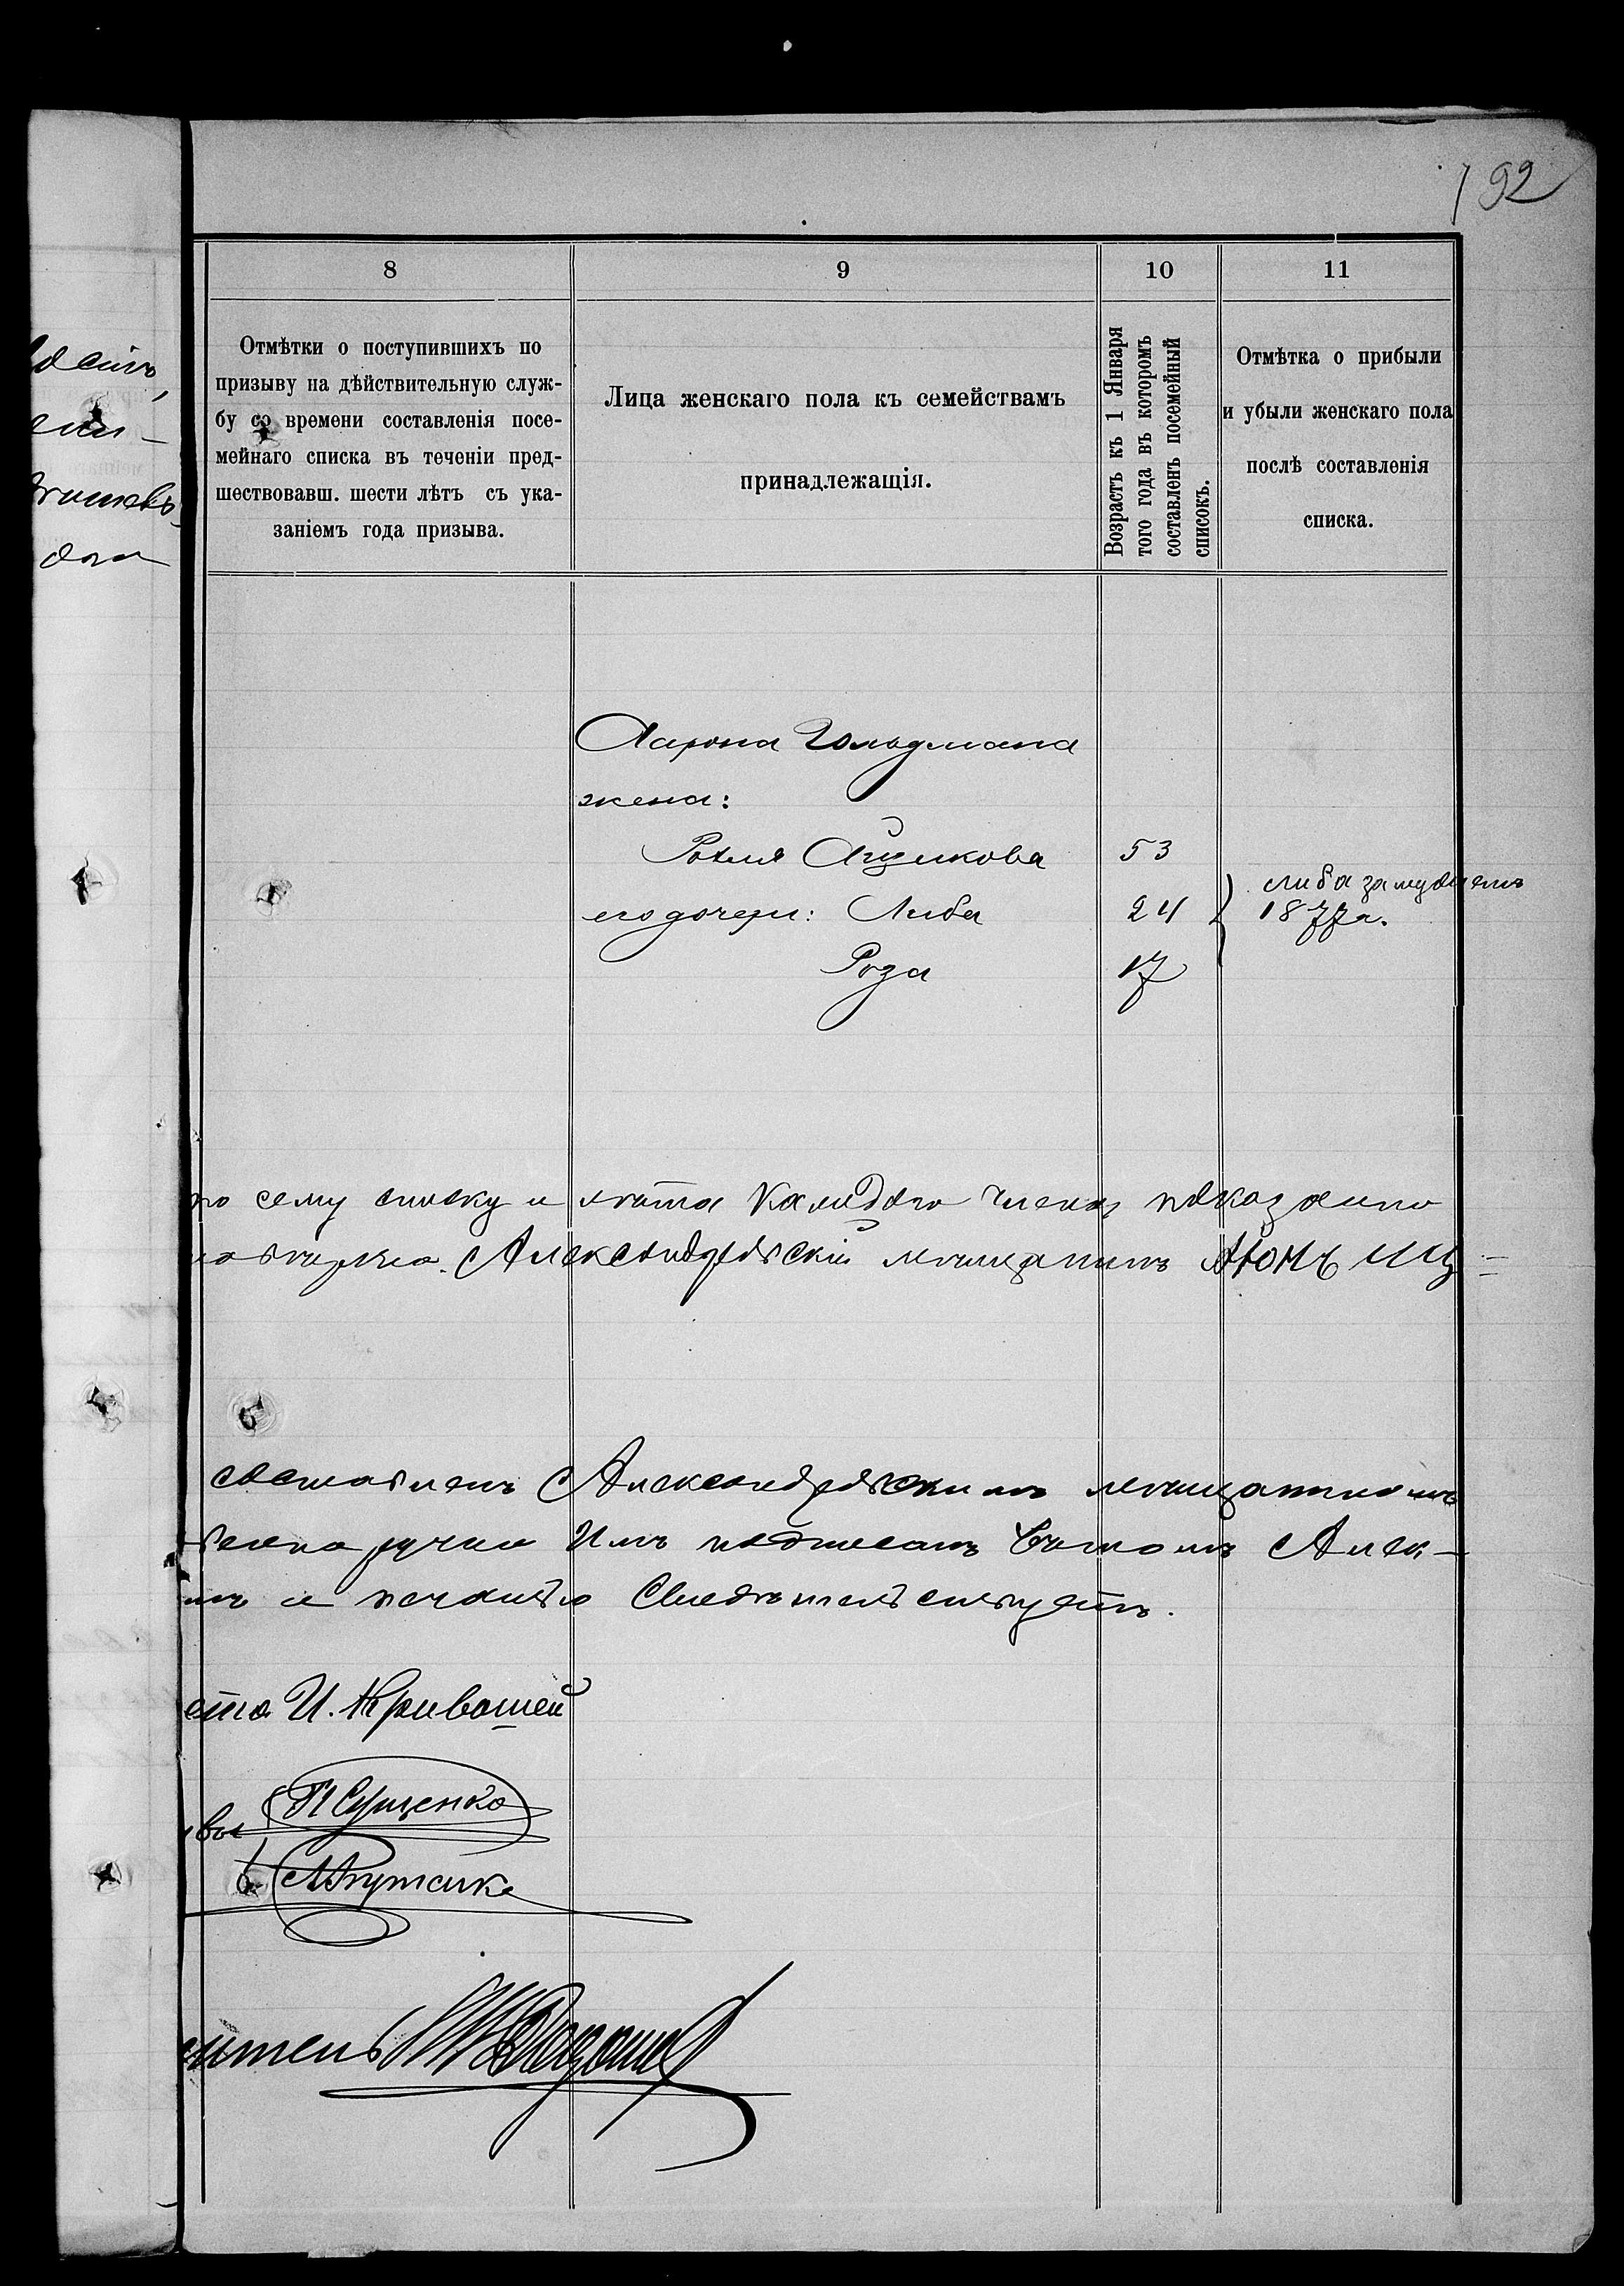 192
8
9
10
11
Отмѣтки о поступившихъ по
призыву на дѣйствительную служ-
бу со времени составленія посе-
мейнаго списка въ теченіи пред-
шествовавш. шести лѣтъ съ ука-
заніемъ года призыва.
Лица женскаго пола къ семействамъ
принадлежащія.
Возрастъ къ 1 Января
того года въ которомъ
составленъ посемейный
списокъ.
Отмѣтка о прибыли
и убыли женскаго пола
послѣ составленія
списка.
Аарона Гольдмана
жена:
Рохля Ицикова 53
его дочери: Либа 24
Либа замужемъ
1877 г.
Роза 17
по сему списку и лѣта каждаго члена показано
Александрійскій мѣщанинъ
составленъ Александрійскимъ мѣщаниномъ
ручно имъ подписанъ въ томъ Алек-
мъ и печатью свидѣтельствуетъ.
И. Кривошей
П Сущенко